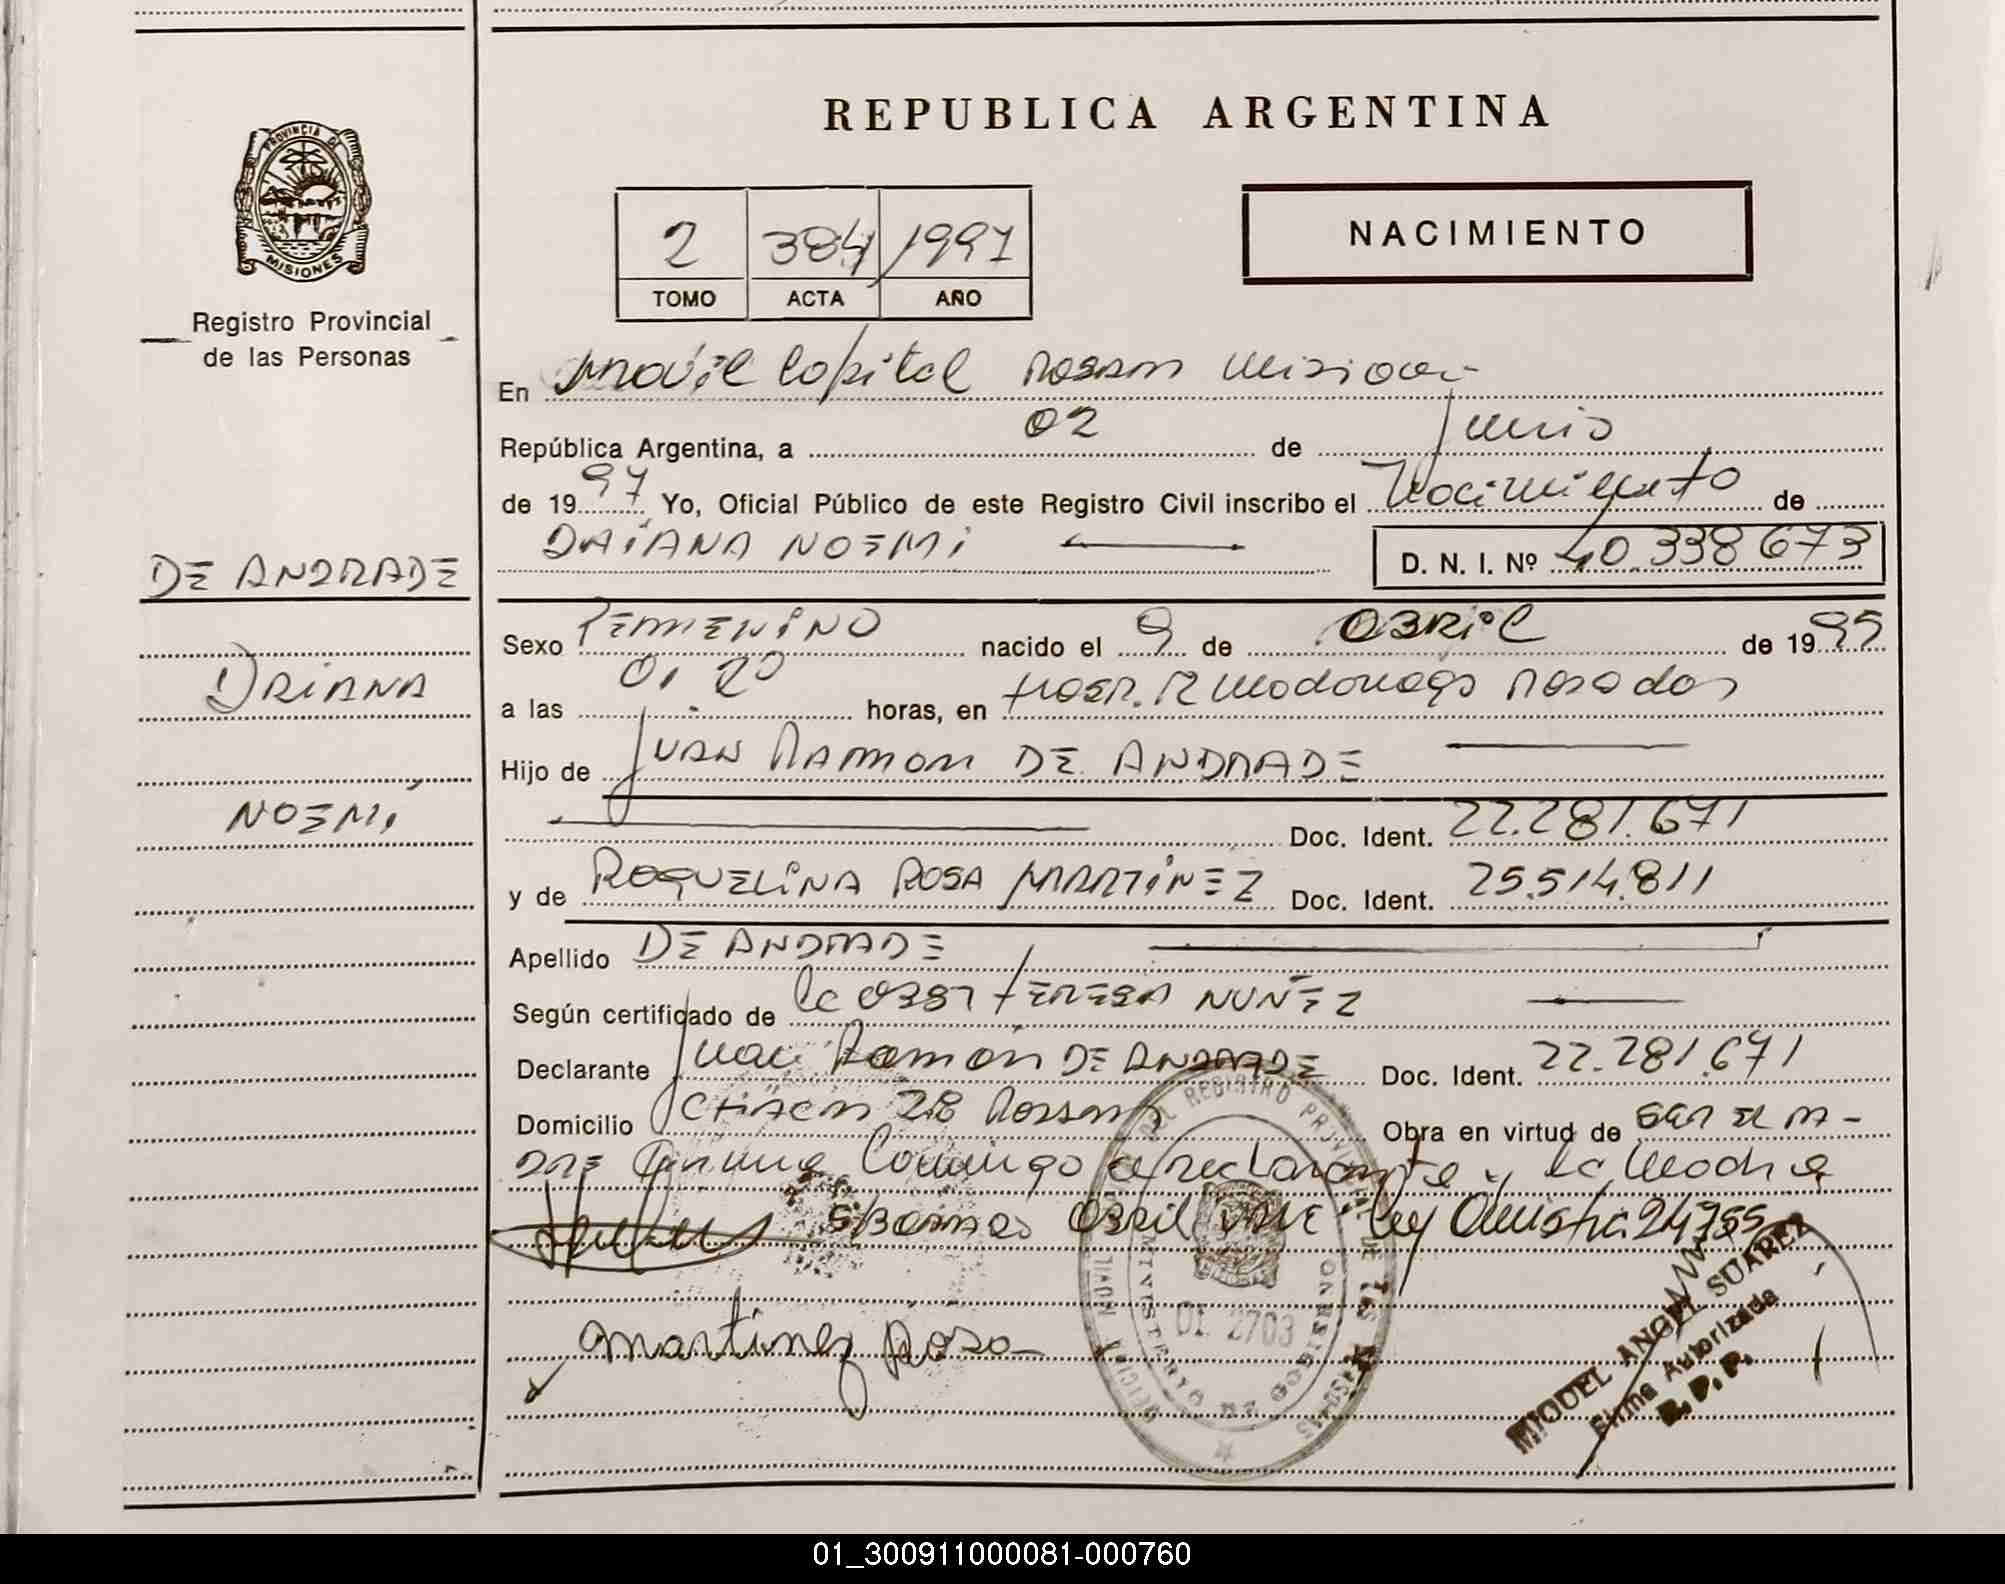 REPUBLICA ARGENTINA
PROVINCIA DE
MISIONES
Registro Provincial
de las Personas
2 384 1997
TOMO ACTA AÑO
NACIMIENTO
En Movil Capital Posadas Misiones
República Argentina, a 02 de Junio
de 1997 Yo, Oficial Público de este Registro Civil inscribo el Nacimiento de
DAIANA NOEMI
D. N. I. Nº 40.338673
DE ANDRADE
DAIANA
NOEMI
Sexo FEMENINO nacido el 9 de ABRIL de 1995
a las 01.20 horas, en Hosp. R Madariaga Posadas
Hijo de JUAN RAMON DE ANDRADE
Doc. Ident. 22.281.671
y de ROQUELINA ROSA MARTINEZ Doc. Ident. 25.514.811
Apellido DE ANDRADE
Según certificado de la OBST TERESA NUÑEZ
Declarante Juan Ramon DE ANDRADE Doc. Ident. 22.281.671
Domicilio CHACRA 28 Posadas Obra en virtud de SER EL PA-
DRE Firma Conmigo el declarante y la Madre
Abril VALE Ley Amnistia 24755
Martinez Rosa
DEL REGISTRO PROVINCIAL DE LAS PERSONAS
MINISTERIO DE GOBIERNO
OFICINA MOVIL
01 2703
MIGUEL ANGEL SUAREZ
Firma Autorizada
R.P.P.
01_300911000081-000760